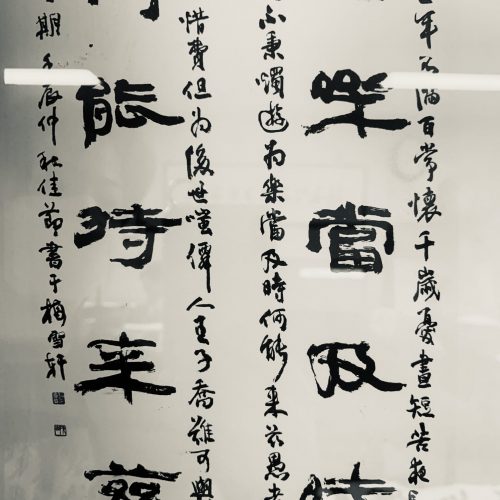 年不滿百常懷千歲憂晝短苦夜
樂當及時
不秉燭遊為樂當及時何能來茲愚者
惜費但為後世嗤僊人王子喬難可與
能待來茲
期壬辰仲秋佳節書于梅雪軒